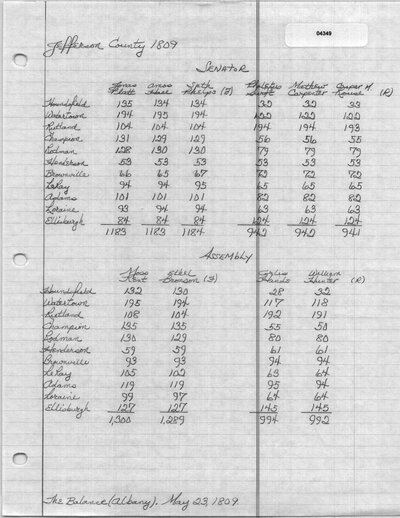 04349
Jefferson County 1809
SENATOR
Jonas Platt Amos Hall Seth Phelps (F) Philetus Swift Mathew Carpenter Casper M Rouse (R)
Houndsfield 135 134 134 32 32 33
Watertown 194 195 194 122 122 122
Rutland 104 104 104 194 194 193
Champion 131 129 129 56 56 55
Rodman 128 130 130 79 79 79
Henderson 53 53 53 53 53 53
Brownville 66 65 67 72 72 72
LeRay 94 94 95 65 65 65
Adams 101 101 101 82 82 82
Loraine 93 94 94 63 63 63
Ellisburgh 84 84 84 124 124 124
1183 1183 1184 942 942 941
ASSEMBLY
Moss Kent Ethel Bronson (F) William Hunter (R)
Houndsfield 132 130 28 32
Watertown 195 194 117 118
Rutland 108 104 192 191
Champion 135 135 55 50
Rodman 130 129 80 80
Henderson 59 59 61 61
Brownville 93 93 94 94
LeRay 105 102 63 64
Adams 119 119 95 94
Loraine 99 97 64 64
Ellisburgh 127 127 145 145
1,300 1,289 994 992
The Balance (Albany). May 23, 1809.